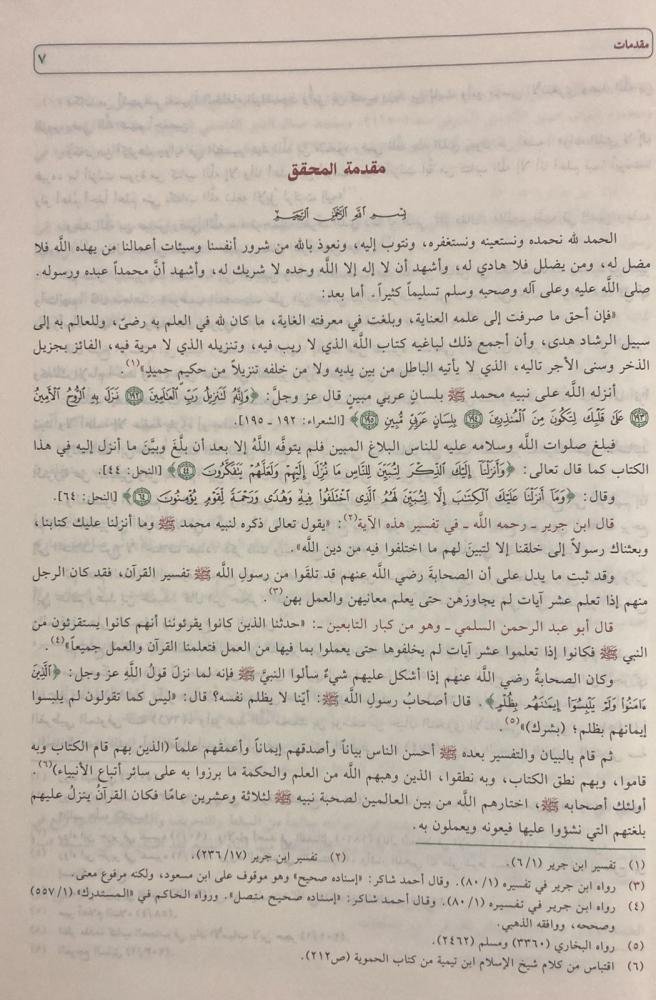 مقدمات
٧
مقدمة المحقق
بسم الله الرحمن الرحيم
الحمد لله نحمده ونستعينه ونستغفره، ونتوب إليه، ونعوذ بالله من شرور أنفسنا وسيئات أعمالنا من يهده اللَّه فلا
مضل له، ومن يضلل فلا هادي له، وأشهد أن لا إله إلا اللَّه وحده لا شريك له، وأشهد أنَّ محمداً عبده ورسوله.
صلى اللَّه عليه وعلى آله وصحبه وسلم تسليماً كثيراً. أما بعد:
«فإن أحق ما صرفت إلى علمه العناية، وبلغت في معرفته الغاية، ما كان لله في العلم به رضىً، وللعالم به إلى
سبيل الرشاد هدى، وأن أجمع ذلك لباغيه كتاب اللَّه الذي لا ريب فيه، وتنزيله الذي لا مرية فيه، الفائز بجزيل
الذخر وسنى الأجر تاليه، الذي لا يأتيه الباطل من بين يديه ولا من خلفه تنزيلاً من حكيمٍ حميدٍ»(١).
أنزله اللَّه على نبيه محمد ﷺ بلسانٍ عربيٍ مبينٍ قال عز وجلَّ: ﴿وَإِنَّهُۥ لَتَنزِيلُ رَبِّ ٱلْعَـٰلَمِينَ ١٩٢ نَزَلَ بِهِ ٱلرُّوحُ ٱلْأَمِينُ
١٩٣ عَلَىٰ قَلْبِكَ لِتَكُونَ مِنَ ٱلْمُنذِرِينَ ١٩٤ بِلِسَانٍ عَرَبِىٍّ مُّبِينٍ ١٩٥﴾ [الشعراء: ١٩٢ - ١٩٥].
فبلغ صلوات اللَّه وسلامه عليه للناس البلاغ المبين فلم يتوفَّه اللَّهُ إلا بعد أن بلَّغَ وبيَّنَ ما أنزل إليه في هذا
الكتاب كما قال تعالى: ﴿وَأَنزَلْنَآ إِلَيْكَ ٱلذِّكْرَ لِتُبَيِّنَ لِلنَّاسِ مَا نُزِّلَ إِلَيْهِمْ وَلَعَلَّهُمْ يَتَفَكَّرُونَ ٤٤﴾ [النحل: ٤٤].
وقال: ﴿وَمَآ أَنزَلْنَا عَلَيْكَ ٱلْكِتَـٰبَ إِلَّا لِتُبَيِّنَ لَهُمُ ٱلَّذِى ٱخْتَلَفُوا۟ فِيهِ وَهُدًى وَرَحْمَةً لِّقَوْمٍ يُؤْمِنُونَ ٦٤﴾ [النحل: ٦٤].
قال ابن جرير ـ رحمه اللَّه ـ في تفسير هذه الآية(٢): «يقول تعالى ذكره لنبيه محمد ﷺ وما أنزلنا عليك كتابنا،
وبعثناك رسولاً إلى خلقنا إلا لتبينَ لهم ما اختلفوا فيه من دين اللَّه».
وقد ثبت ما يدل على أن الصحابةَ رضي اللَّه عنهم قد تلقَّوا من رسولِ اللَّه ﷺ تفسير القرآن، فقد كان الرجل
منهم إذا تعلم عشر آيات لم يجاوزهن حتى يعلم معانيهن والعمل بهن(٣).
قال أبو عبد الرحمن السلمي ـ وهو من كبار التابعين ـ: «حدثنا الذين كانوا يقرئوننا أنهم كانوا يستقرئون من
النبي ﷺ فكانوا إذا تعلموا عشر آيات لم يخلفوها حتى يعملوا بما فيها من العمل فتعلمنا القرآن والعمل جميعاً»(٤).
وكان الصحابةُ رضي اللَّه عنهم إذا أشكل عليهم شيءٌ سألوا النبيَّ ﷺ فإنه لما نزلَ قولُ اللَّهِ عز وجل: ﴿ٱلَّذِينَ
ءَامَنُوا۟ وَلَمْ يَلْبِسُوٓا۟ إِيمَـٰنَهُم بِظُلْمٍ﴾. قال أصحابُ رسولِ اللَّه ﷺ: أيّنا لا يظلم نفسه؟ قال: «ليس كما تقولون لم يلبسوا
إيمانهم بظلم؛ (بشرك)»(٥).
ثم قام بالبيان والتفسير بعده ﷺ أحسن الناس بياناً وأصدقهم إيماناً وأعمقهم علماً (الذين بهم قام الكتاب وبه
قاموا، وبهم نطق الكتاب، وبه نطقوا، الذين وهبهم اللَّه من العلم والحكمة ما برزوا به على سائر أتباع الأنبياء)(٦).
أولئك أصحابه ﷺ، اختارهم اللَّه من بين العالمين لصحبة نبيه ﷺ لثلاثة وعشرين عامًا فكان القرآنُ ينزلُ عليهم
بلغتهم التي نشؤوا عليها فيعونه ويعملون به.
(١) تفسير ابن جرير (٦/١).
(٢) تفسير ابن جرير (٢٣٦/١٧).
(٣) رواه ابن جرير في تفسيره (٨٠/١). وقال أحمد شاكر: «إسناده صحيح» وهو موقوف على ابن مسعود، ولكنه مرفوع معنى.
(٤) رواه ابن جرير في تفسيره (٨٠/١). وقال أحمد شاكر: «إسناده صحيح متصل». ورواه الحاكم في «المستدرك» (٥٥٧/١)
وصححه، ووافقه الذهبي.
(٥) رواه البخاري (٣٣٦٠) ومسلم (٢٤٦٢).
(٦) اقتباس من كلام شيخ الإسلام ابن تيمية من كتاب الحموية (ص٢١٢).